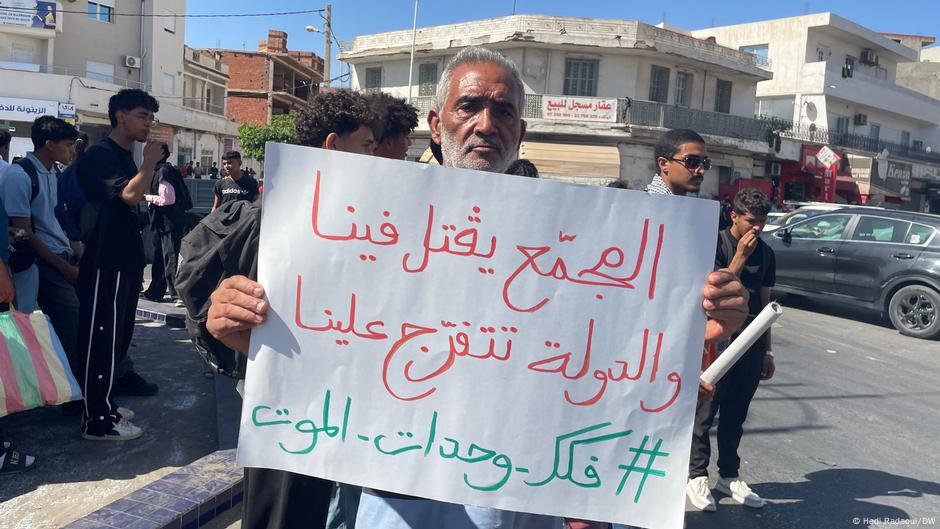 المجمّع يڨتل فينا
والدولة تتفرّج علينا
#فكك-وحدات-الموت
عقار مسجل للبيع
© Hedi Radaoui/DW